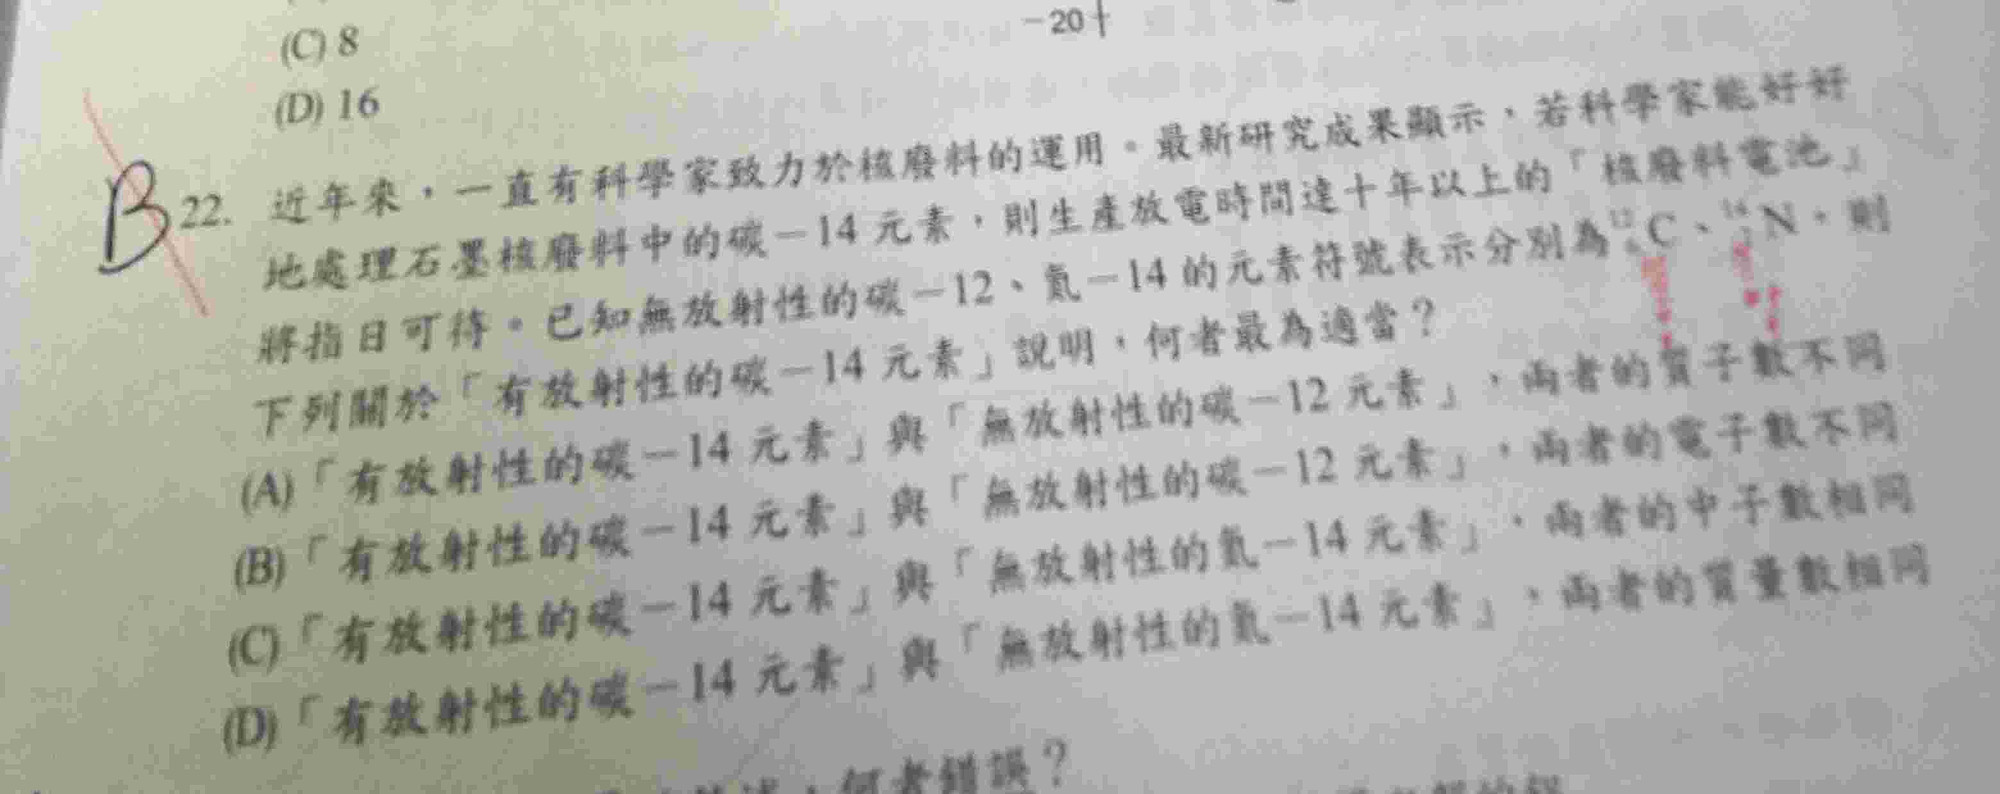 (C) 8
-20
(D) 16
B 22. 近年來，一直有科學家致力於核廢料的運用。最新研究成果顯示，若科學家能好好
地處理石墨核廢料中的碳－14 元素，則生產放電時間達十年以上的「核廢料電池」
將指日可待。已知無放射性的碳－12、氮－14 的元素符號表示分別為 ¹²₆C、¹⁴₇N，則
下列關於「有放射性的碳－14 元素」說明，何者最為適當？
(A)「有放射性的碳－14 元素」與「無放射性的碳－12 元素」，兩者的質子數不同
(B)「有放射性的碳－14 元素」與「無放射性的碳－12 元素」，兩者的電子數不同
(C)「有放射性的碳－14 元素」與「無放射性的氮－14 元素」，兩者的中子數相同
(D)「有放射性的碳－14 元素」與「無放射性的氮－14 元素」，兩者的質量數相同
，何者錯誤？